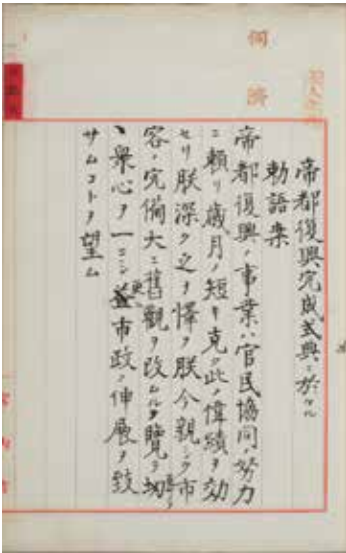 伺濟
帝都復興完成式典ニ於ケル
勅語案
帝都復興ノ事業ハ官民協同ノ努力
ニ頼リ歳月ノ短キ克ク此ノ偉績ヲ効
セリ朕深ク之ヲ懌フ朕今親シク市
容ノ完備大ニ舊觀ヲ改ムルヲ覽ル
衆心ヲ一ニシ更ニ益市政ノ伸展ヲ致
サムコトヲ望ム